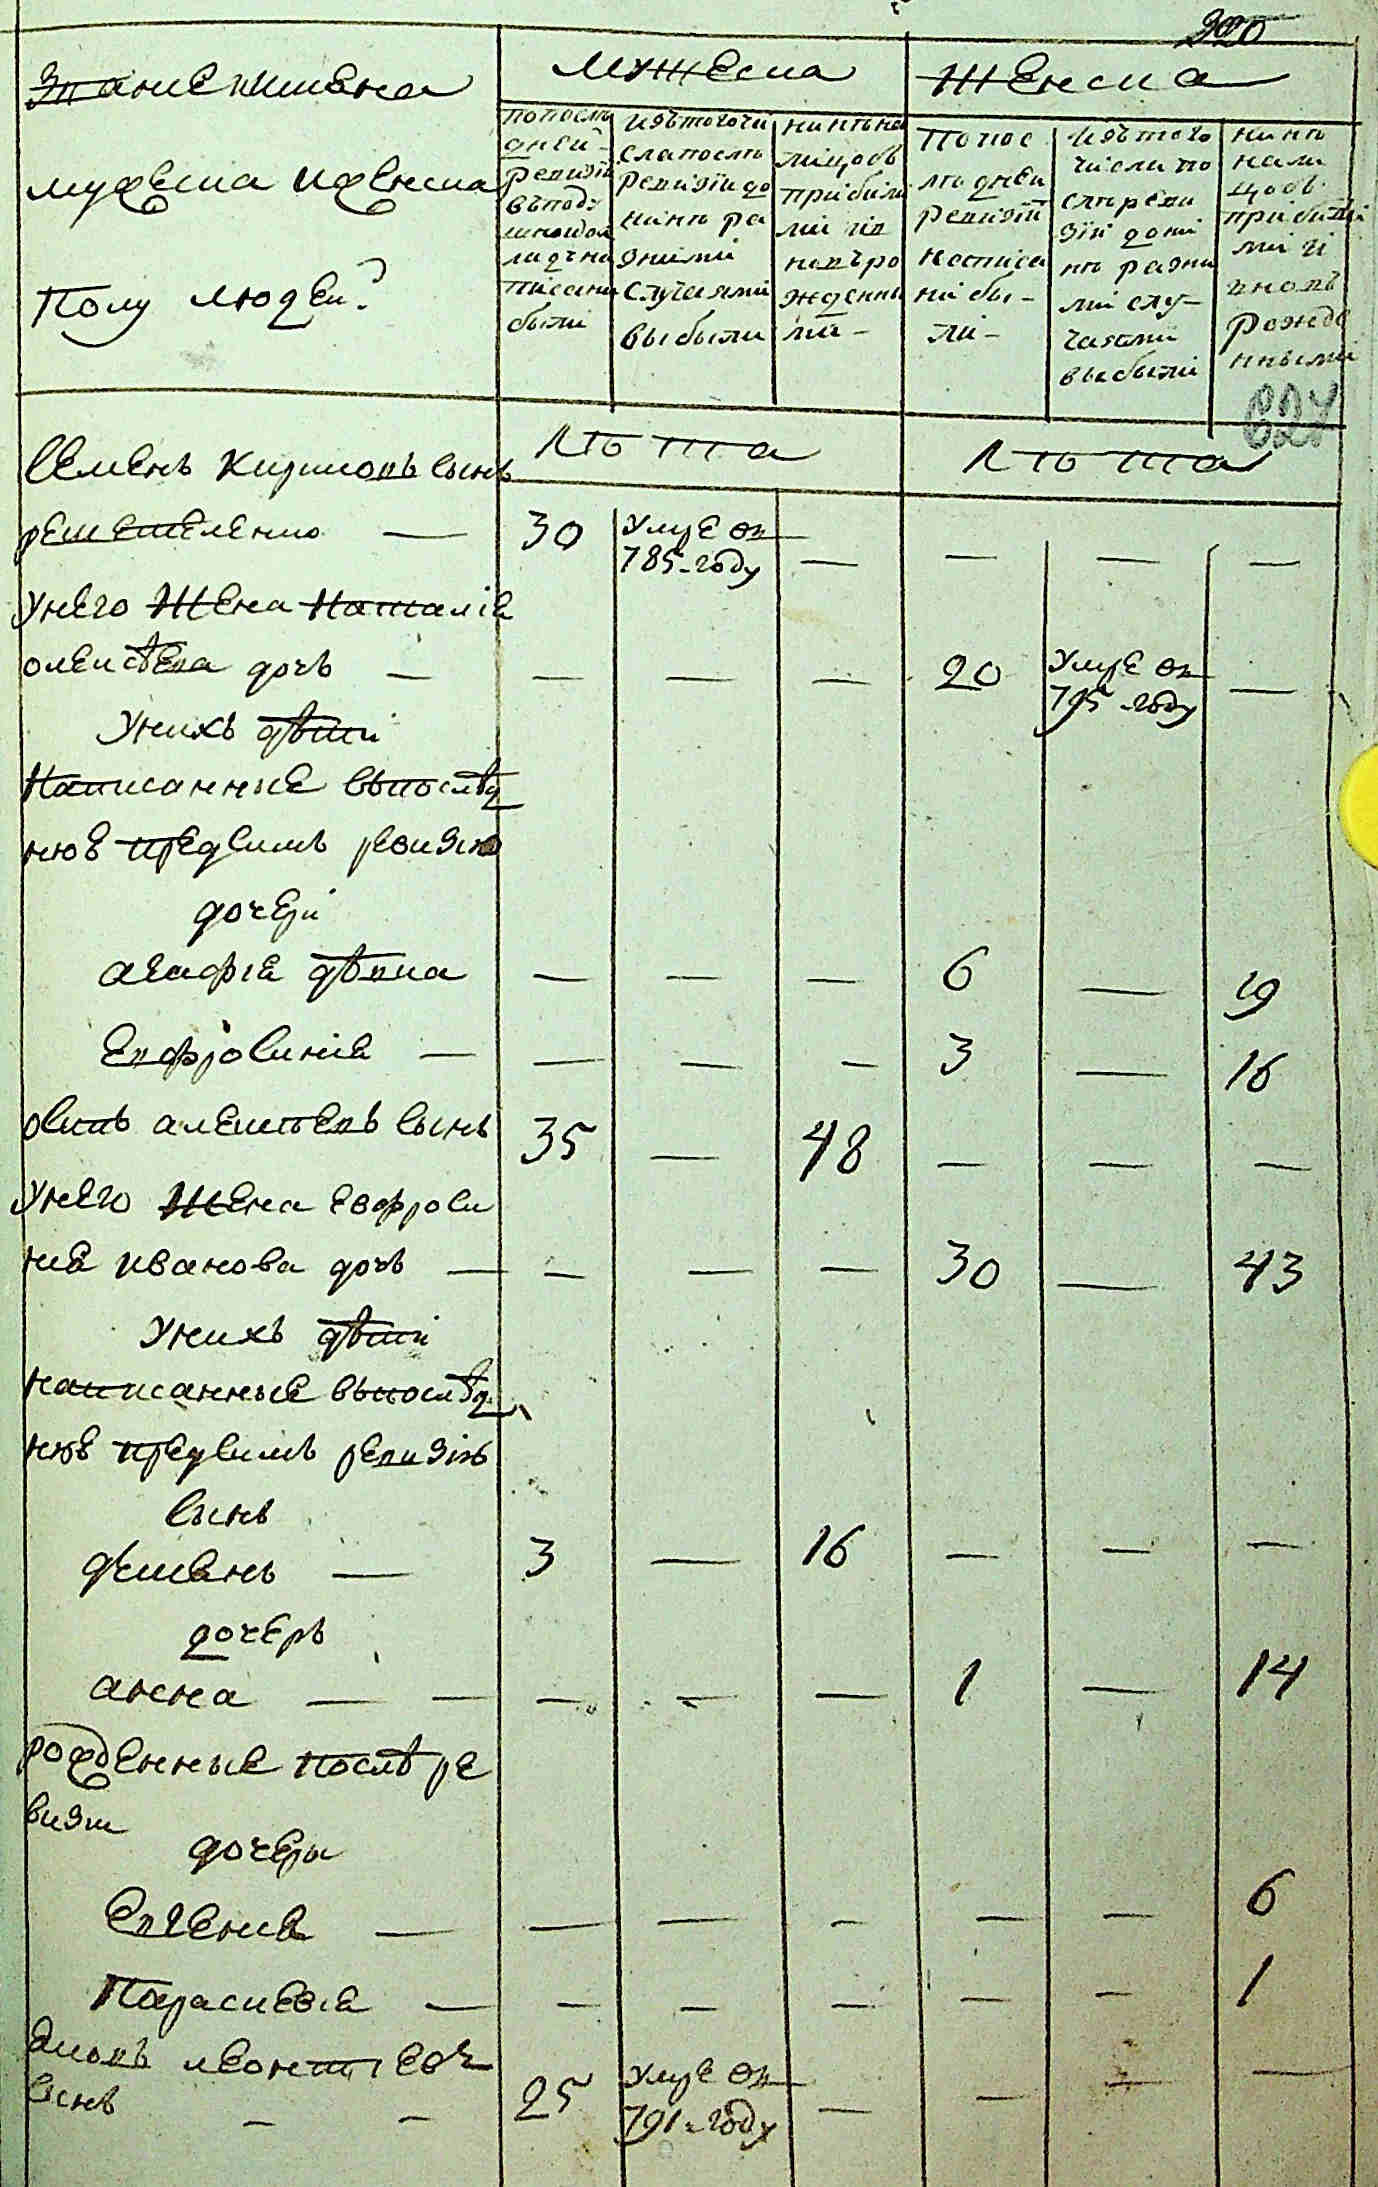 320
Звание и имена
мужеска и женска
полу людей?
мужеска
женска
по после
дней
ревизии
в подуш
ный окла
д на
писаны
были
изъ того чи
сла после
ревизии до
ныне ра
зными
случаями
выбыли
ныне на
лицо съ
прибылы
ми и в
новь ро
жденны
ми
по пос
ледней
ревизии
написа
ны бы
ли
изъ того
числа по
сле реви
зии до ны
не разны
ми слу
чаями
выбыли
ныне
нали
цо съ
прибылы
ми и
вновь
рожде
нными
лѣта
лѣта
Семенъ Кириловъ сынъ
решетеленко — 30 умре въ — — — —
785-году
у него жена наталiя
олексѣева дочь — — — — 20 умре въ —
795-году
у нихъ дѣти
написанные въ послѣд
нюю предъ симъ ревизiю
дочери
агафiя дѣвка — — — 6 — 19
Евфросинiя — — — — 3 — 16
осипъ алексѣевъ сынъ 35 — 48 — — —
у него жена евфроси
ния иванова дочь — — — — 30 — 43
у нихъ дѣти
написанные въ послѣд
нюю предъ симъ ревизiю
сынъ
— 3 — 16 — — —
дочерь
анна — — — — — 1 — 14
рожденные послѣ ре
визiи
дочери
Евгения — — — — — — 6
Параскевiя — — — — — — 1
Яковъ леонтiевъ
сынъ — — 25 умре въ — — — —
791-году